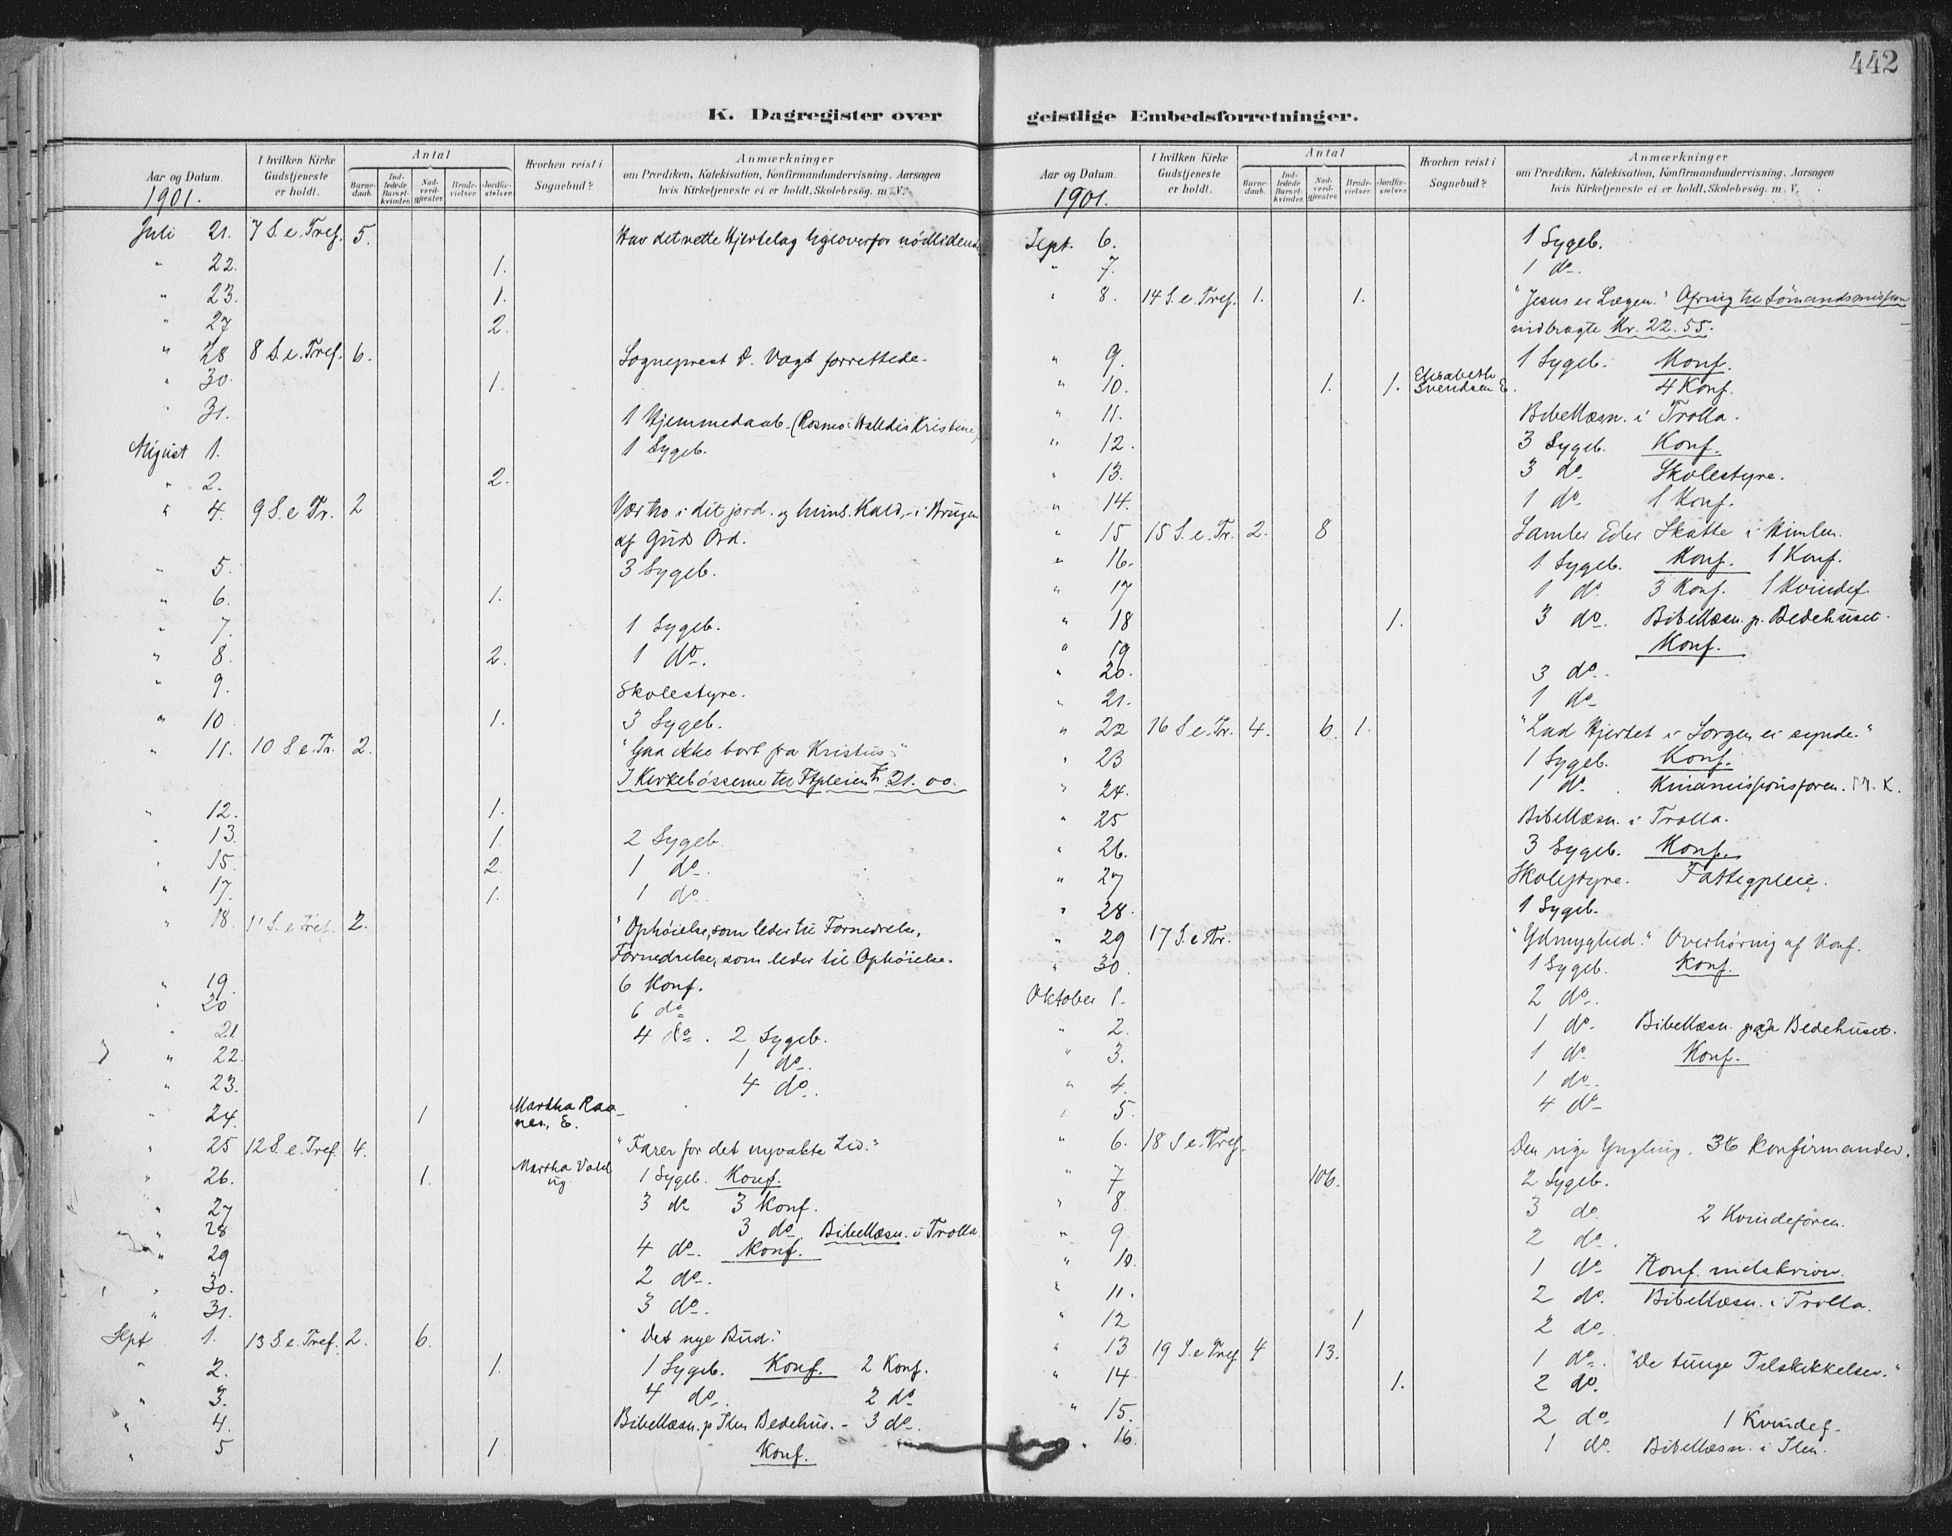 442
K. Dagregister over
geistlige Embedsforretninger.
Aar og Datum.
I hvilken Kirke Gudstjeneste er holdt.
Antal
Barnedaab.
Indledede Barselkvinder.
Nadverdgjæster.
Brudevielser.
Jordfæstelser.
Hvorhen reist i Sognebud?
Anmærkninger
om Prædiken, Katekisation, Konfirmandundervisning. Aarsagen
hvis Kirketjeneste ei er holdt. Skolebesøg. m. V.
1901.
Juli 21. 7 S. e. Tref. 5. Hav det rette Hjertelag ligeoverfor nødlidende
" 22. 1.
" 23. 1.
" 27 2.
" 28 8 S. e. Tref. 6. Sogneprest D. Vogt forrettede.
" 30. 1.
" 31. 1 Hjemmedaab. (Rosmo: Halldis Kristine)
August 1. 1 Sygeb.
" 2. 2.
" 4. 9 S. e Tr. 2 Vær tro i dit jord. og himls. Kald, - i Brugen
af Guds Ord.
" 5. 3 Sygeb.
" 6. 1.
" 7. 1 Sygeb.
" 8. 2. 1 do.
" 9. Skolestyre.
" 10 1. 3 Sygeb.
" 11. 10 S. e. Tr. 2. "Gaa ikke bort fra Kristus."
I Kirkebøsserne til Ftpleien Kr 21.00.
" 12. 1.
" 13. 1. 2 Sygeb.
" 15. 2. 1 do.
" 17. 1. 1 do.
" 18. 11 S. e Tref. 2. "Ophøielse, som leder til Fornedrelse,
Fornedrelse, som leder til Ophøielse.
" 19. 6 Konf.
" 20 6 do
" 21 4 do. 2 Sygeb.
" 22. 1 do.
" 23. 4 do.
" 24. 1 Martha Raa-
nes, E.
" 25 12 S. e. Tref. 4. "Farer for det nyvakte Liv."
" 26. 1. Martha Vold
ug 1 Sygeb. Konf.
" 27 3 do 3 Konf.
" 28 3 do Bibellæsn. i Trolla.
" 29 4 do. Konf.
" 30. 2 do.
" 31. 3 do.
Sept 1. 13 S. e. Tref. 2. 6. "Det nye Bud."
" 2. 1. 1 Sygeb. Konf. 2 Konf.
" 3. 4 do. 2 do
" 4. Bibellæsn. p. Ilen Bedehus. - 3 do.
" 5 1. Konf.
Aar og Datum.
I hvilken Kirke Gudstjeneste er holdt.
Antal
Barnedaab.
Indledede Barselkvinder.
Nadverdgjæster.
Brudevielser.
Jordfæstelser.
Hvorhen reist i Sognebud?
Anmærkninger
om Prædiken, Katekisation, Konfirmandundervisning. Aarsagen
hvis Kirketjeneste ei er holdt. Skolebesøg. m. V.
1901.
Sept. 6. 1 Sygeb.
" 7. 1 do.
" 8. 14 S. e. Tref. 1. 1. "Jesus er Lægen." Ofring til Sømandsmissjon
indbragte Kr. 22.55.
" 9. 1 Sygeb. Konf.
" 10. 1. 1. Elisabeth
Svendsen E. 4 Konf.
" 11. Bibellæsn. i Trolla.
" 12. 3 Sygeb. Konf.
" 13. 3 do Skolestyre.
" 14. 1 do. 1 Konf.
" 15 15 S. e. Tr. 2. 8 Samler Eder Skatte i Himlen.
" 16. 1 Sygeb. Konf. 1 Konf.
" 17 1 do. 3 Konf. 1 Kvindef.
" 18 1. 3 do. Bibellæsn. p. Bedehuset.
" 19 Konf.
" 20. 3 do.
" 21. 1 do
" 22 16 S. e. Tr. 4. 6. 1. "Lad Hjertet i Sorgen ei synde."
" 23 1 Sygeb. Konf.
" 24. 1 do. Kinamissionsforen. M. K.
" 25 Bibellæsn. i Trolla.
" 26. 3 Sygeb. Konf.
" 27 Skolestyre. Fattigpleie.
" 28. 1 Sygeb.
" 29 17 S. e Tr. "Ydmyghed." Overhøring af Konf.
" 30. 1 Sygeb. Konf.
Oktober 1. 2 do.
" 2. 1 do. Bibellæsn. paa Bedehuset.
" 3. 1 do. Konf.
" 4. 1 do.
" 5. 4 do
" 6. 18 S e. Tref. Den rige Yngling. 36 Konfirmander.
" 7 106. 2 Sygeb.
" 8. 3 do. 2 Kvindeforen.
" 9 2 do.
" 10. 1 do Konf. udskriv.
" 11. 2 do. Bibellæsn. i Trolla.
" 12 1 2 do.
" 13 19 S. e Tref 4 13. 1 do. "De tunge Tilskikkelser."
" 14 1. 2 do.
" 15. 2 do. 1 Kvindef.
" 16. 1 do. Bibellæsn. i Ilen.